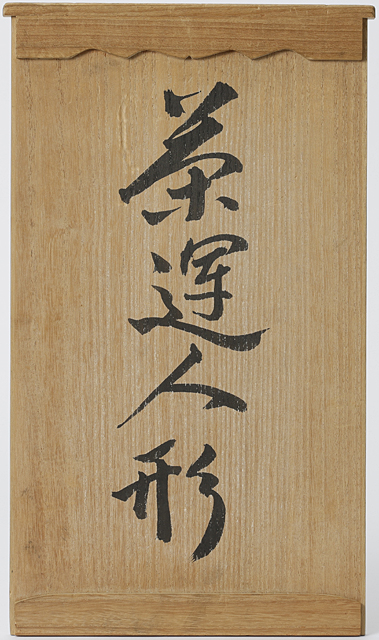 茶運人形